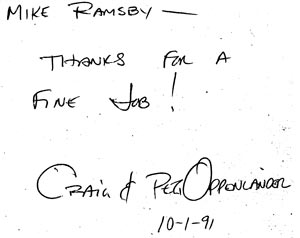 MIKE RAMSBY —
THANKS FOR A
FINE JOB!
CRAIG & PEG OPPENLANDER
10-1-91